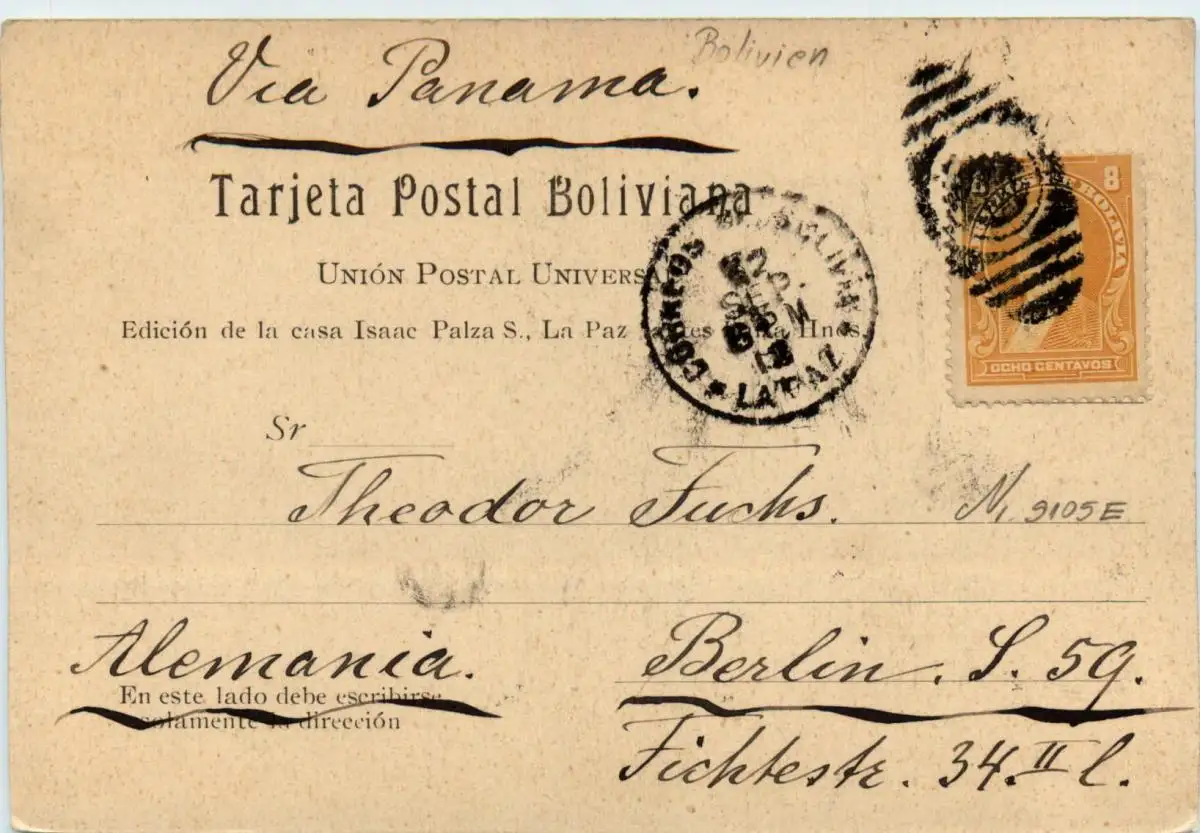 Bolivien
Via Panama.
Tarjeta Postal Boliviana
UNIÓN POSTAL UNIVERSAL
Edición de la casa Isaac Palza S., La Paz Hnos.
CORREOS BOLIVIA
SEP
LA PAZ
8
BOLIVIA
OCHO CENTAVOS
Sr
Theodor Fuchs.
9109E
Alemania.
Berlin. S. 59.
En este lado debe escribirse
solamente la dirección
Fichtestr. 34. II l.